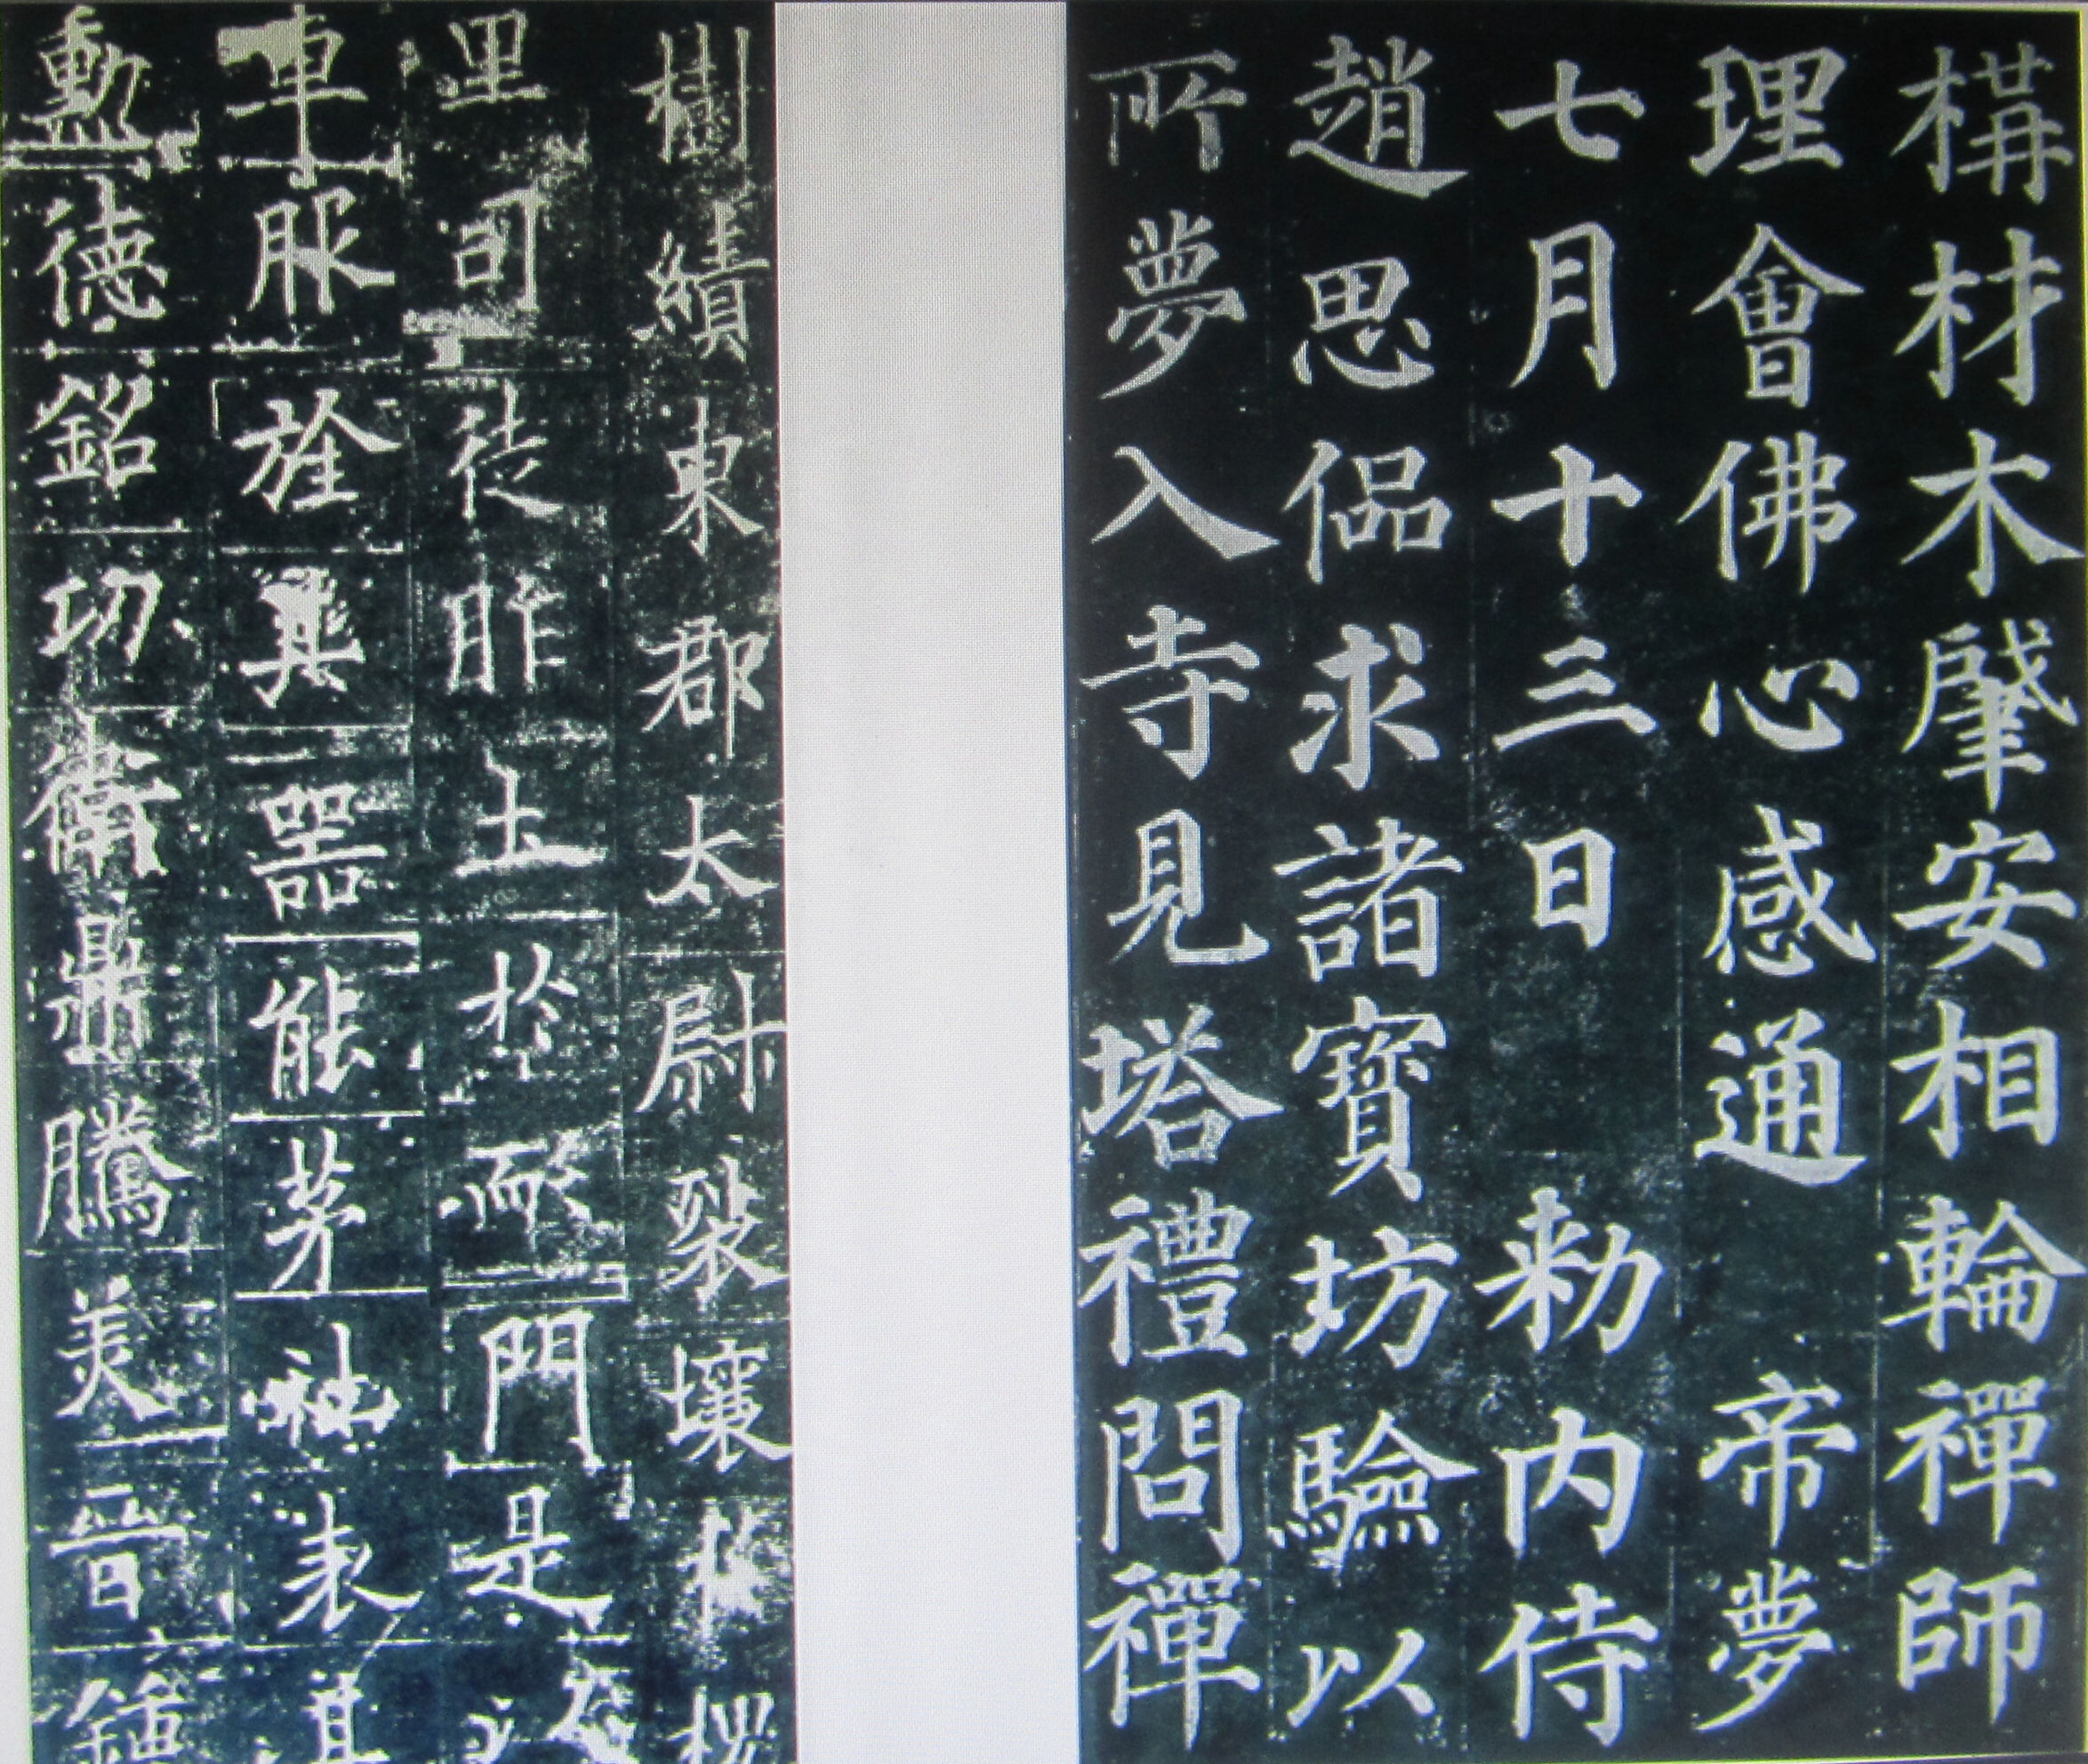 構材木肇安相輪禪師
理會佛心感通帝夢
七月十三日勅內侍
趙思侃求諸寶坊驗以
所夢入寺見塔禮問禪
樹績東郡太尉裂壤
里司徒胙土於
門是
車服旌其器能茅社表其
勳德銘功衛鼎騰美晉鍾